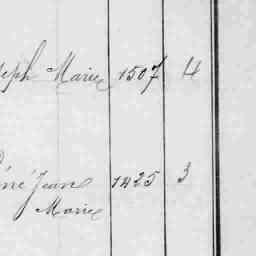 seph Marie 1507 4
éné Jean 1425 3
Marie